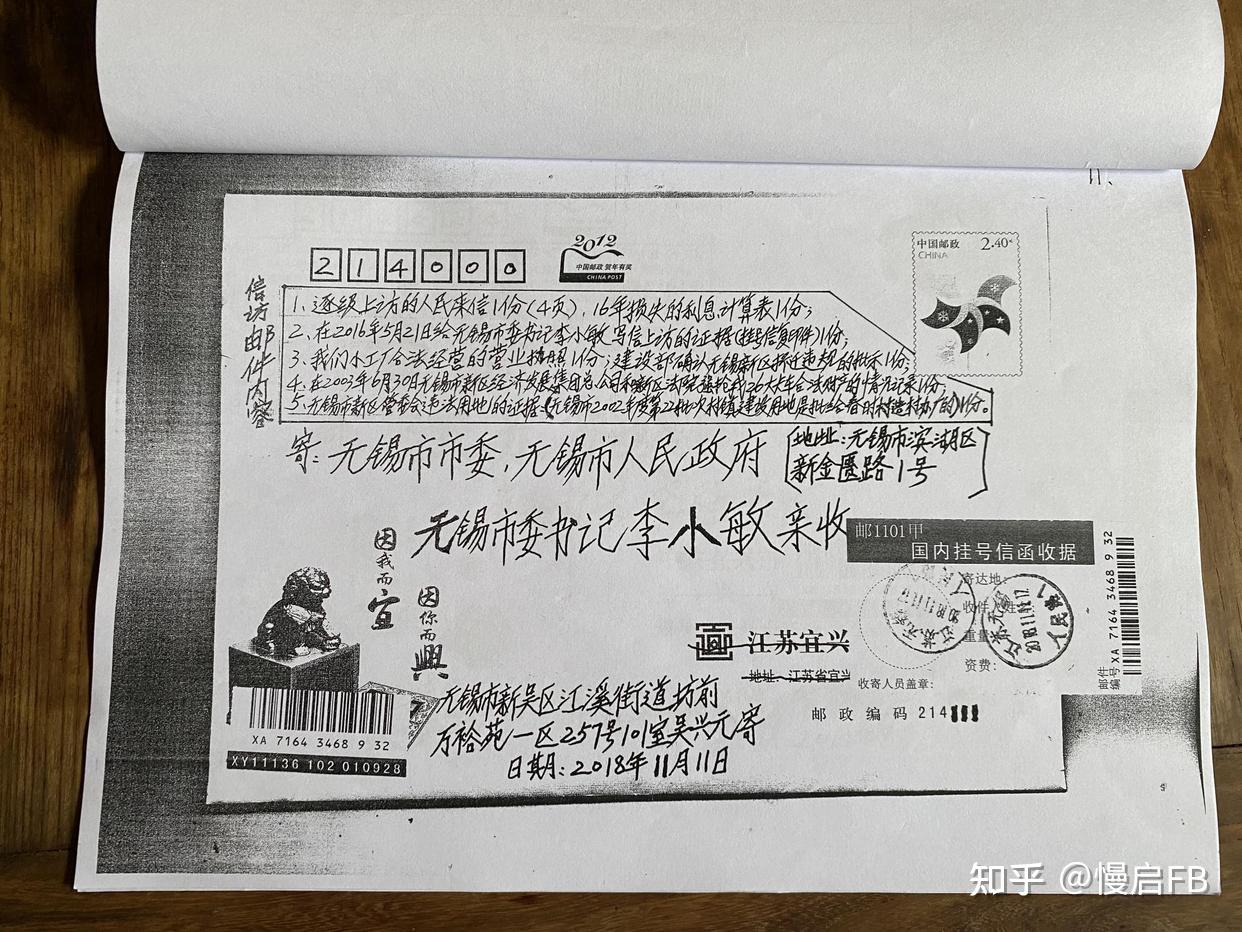 11、
214000
2012
中国邮政 贺年有奖
CHINA POST
中国邮政 2.40元
CHINA
信访邮件内容
1、逐级上访的人民来信1份(4页),16年损失的利息计算表1份;
2、在2016年5月21日给无锡市委书记李小敏写信上访的证据(挂号信复印件)1份;
3、我们小工厂合法经营的营业执照1份;建设部确认无锡新区拆迁违规的批示1份;
4、在2003年6月30日无锡市新区经济发展集团总公司和新区法院强抢我26大卡车合法财产的情况记录1份;
5、无锡市新区管委会违法用地的证据(无锡市2002年度第22批次村镇建设用地是批给春时村造村办厂的)1份。
寄:无锡市市委,无锡市人民政府
(地址:无锡市滨湖区
新金匮路1号
无锡市委书记李小敏亲收
因我而宜
因你而興
邮1101甲
国内挂号信函收据
寄达地:
收件人姓
重量
资费:
收寄人员盖章:
江苏无锡
2018.11.11.17
人民路1
邮件编号 XA 7164 3468 9 32
江苏宜兴
地址:江苏省宜兴
邮政编码 214
无锡市新吴区江溪街道坊前
万裕苑一区257号101室吴兴元寄
日期:2018年11月11日
XA 7164 3468 9 32
XY11136 102 010928
知乎 @慢启FB